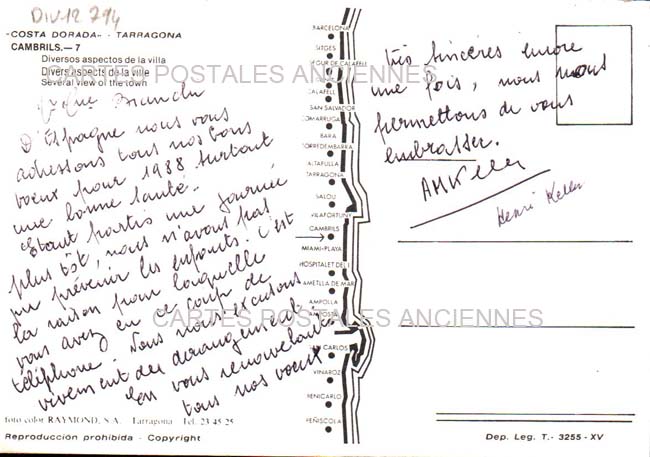 DIV-12 794
"COSTA DORADA" - TARRAGONA
CAMBRILS.—7
Diversos aspectos de la villa
Divers aspects de la ville
Several view of the town
CARTES POSTALES ANCIENNES
D'Espagne nous vous
adressons tous nos bons
voeux pour 1988 surtout
une bonne santé.
Étant partis une journée
plus tôt, nous n'avons pas
pu prévenir les enfants. C'est
la raison pour laquelle
vous avez eu ce coup de
téléphone. Nous nous excusons
vivement du dérangement.
En vous renouvelant
tous nos voeux
très sincères encore
une fois, nous nous
permettons de vous
embrasser.
AMKeller
Henri Keller
BARCELONA
SITGES
TOUR DE CALAFELL
CALAFELL
SAN SALVADOR
COMARRUGA
BARA
TORREDEMBARRA
ALTAFULLA
TARRAGONA
SALOU
VILAFORTUNY
CAMBRILS
MIAMI-PLAYA
HOSPITALET DEL I.
AMETLLA DE MAR
AMPOLLA
AMPOSTA
SAN CARLOS
VINAROZ
BENICARLO
PEÑISCOLA
CARTES POSTALES ANCIENNES
foto color RAYMOND, S.A. Tarragona Tel. 23 45 25
Reproducción prohibida - Copyright
Dep. Leg. T.- 3255 - XV